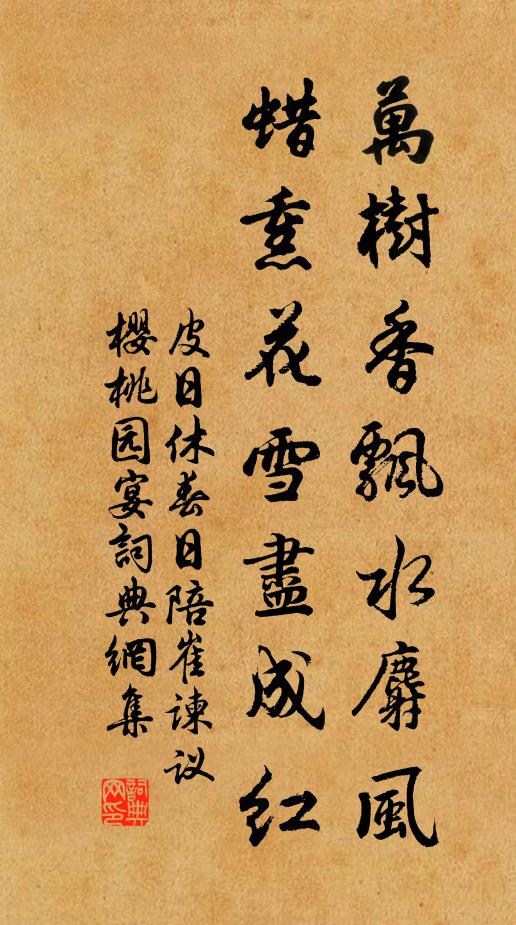 萬樹香飄水麝風
蜡熏花雪盡成紅
皮日休春日陪崔諫议
櫻桃园宴詞典網集
詞典網印